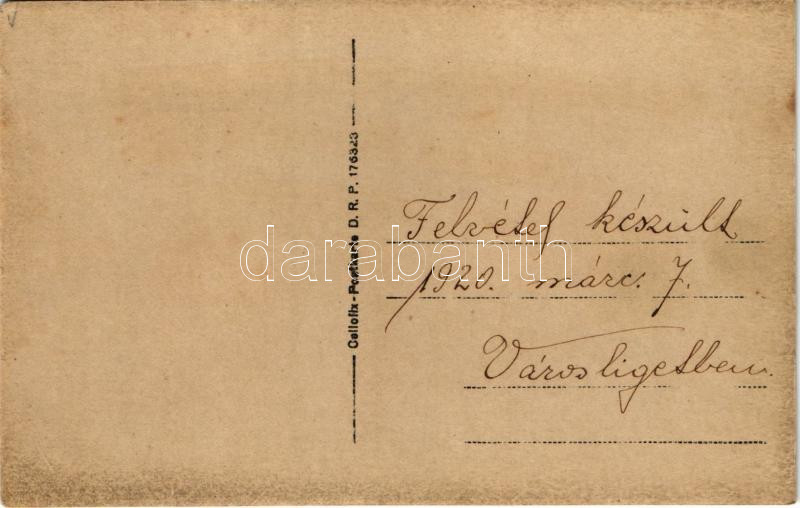 Cellofix-Postkarte D. R. P. 176323
Felvétel készült
1920. márc. 7.
Városligetben.
darabanth